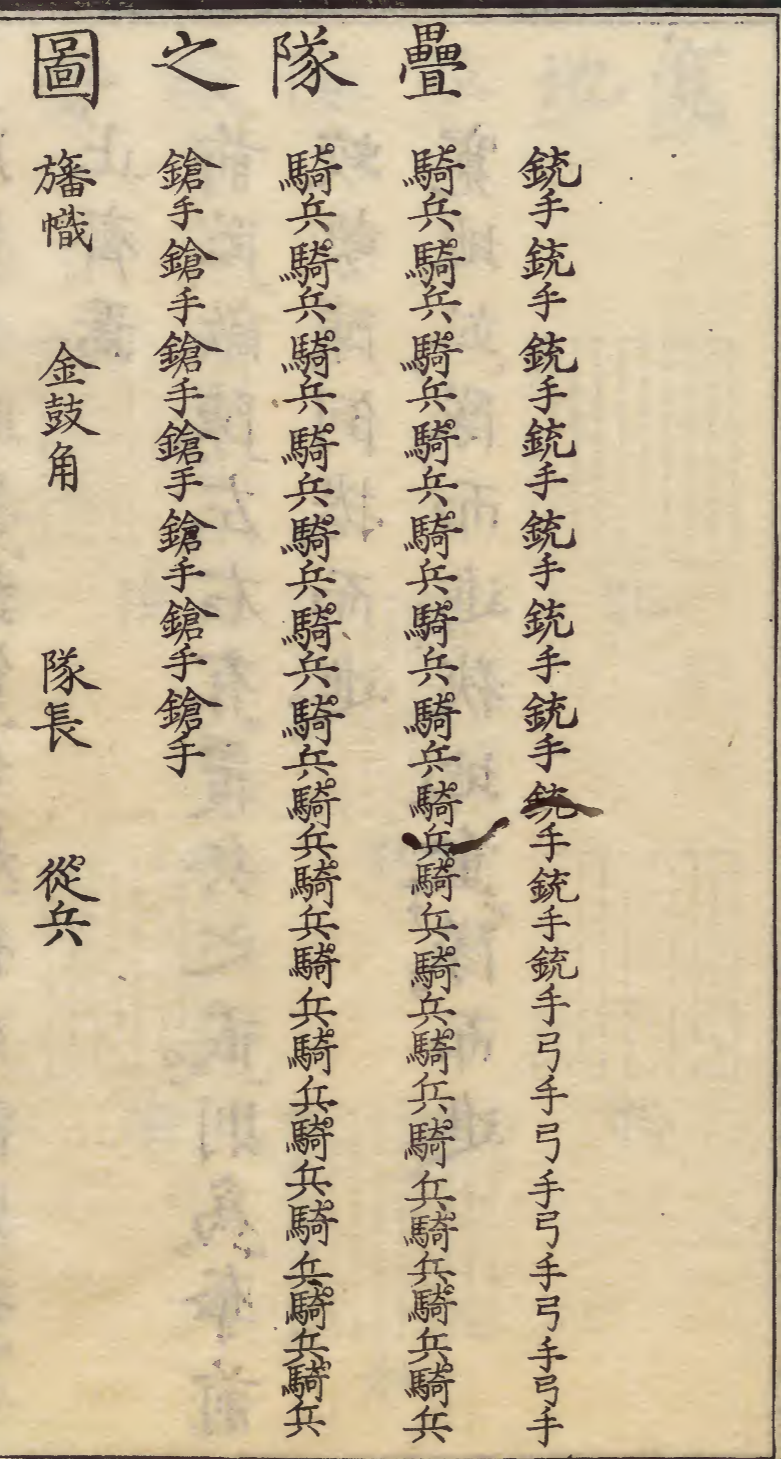 疊隊之圖
銃手銃手銃手銃手銃手銃手銃手銃手銃手銃手弓手弓手弓手弓手弓手
騎兵騎兵騎兵騎兵騎兵騎兵騎兵騎兵騎兵騎兵騎兵騎兵騎兵騎兵騎兵
騎兵騎兵騎兵騎兵騎兵騎兵騎兵騎兵騎兵騎兵騎兵騎兵騎兵騎兵騎兵
鎗手鎗手鎗手鎗手鎗手鎗手鎗手
旛幟 金鼓角 隊長 從兵